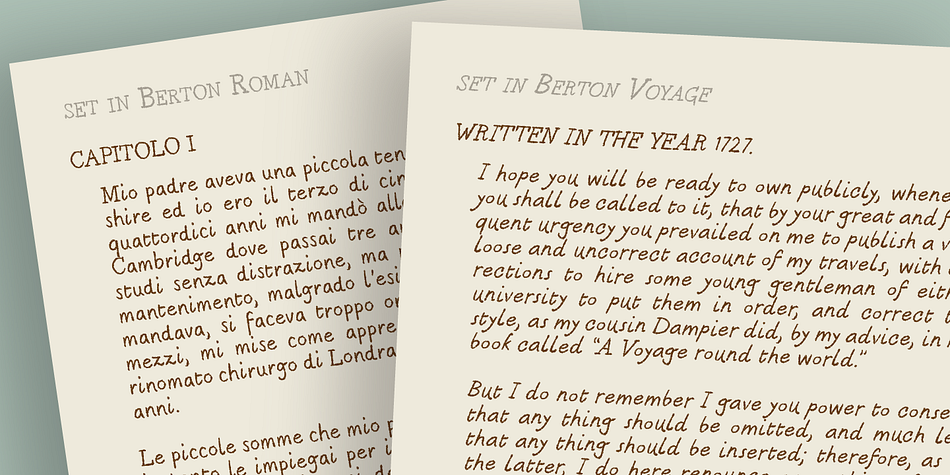 SET IN BERTON ROMAN
CAPITOLO I
Mio padre aveva una piccola
shire ed io ero il terzo di
quattordici anni mi mandò
Cambridge dove passai tre
studi senza distrazione, ma
mantenimento, malgrado
mandava, si faceva troppo
mezzi, mi mise come
rinomato chirurgo di Londra
anni.
Le piccole somme che mio
le impiegai per
SET IN BERTON VOYAGE
WRITTEN IN THE YEAR 1727.
I hope you will be ready to own publicly,
you shall be called to it, that by your great and
quent urgency you prevailed on me to publish a
loose and uncorrect account of my travels, with
rections to hire some young gentleman of
university to put them in order, and correct
style, as my cousin Dampier did, by my advice, in
book called “A Voyage round the world.”
But I do not remember I gave you power to
that any thing should be omitted, and much
that any thing should be inserted; therefore, as
the latter, I do here